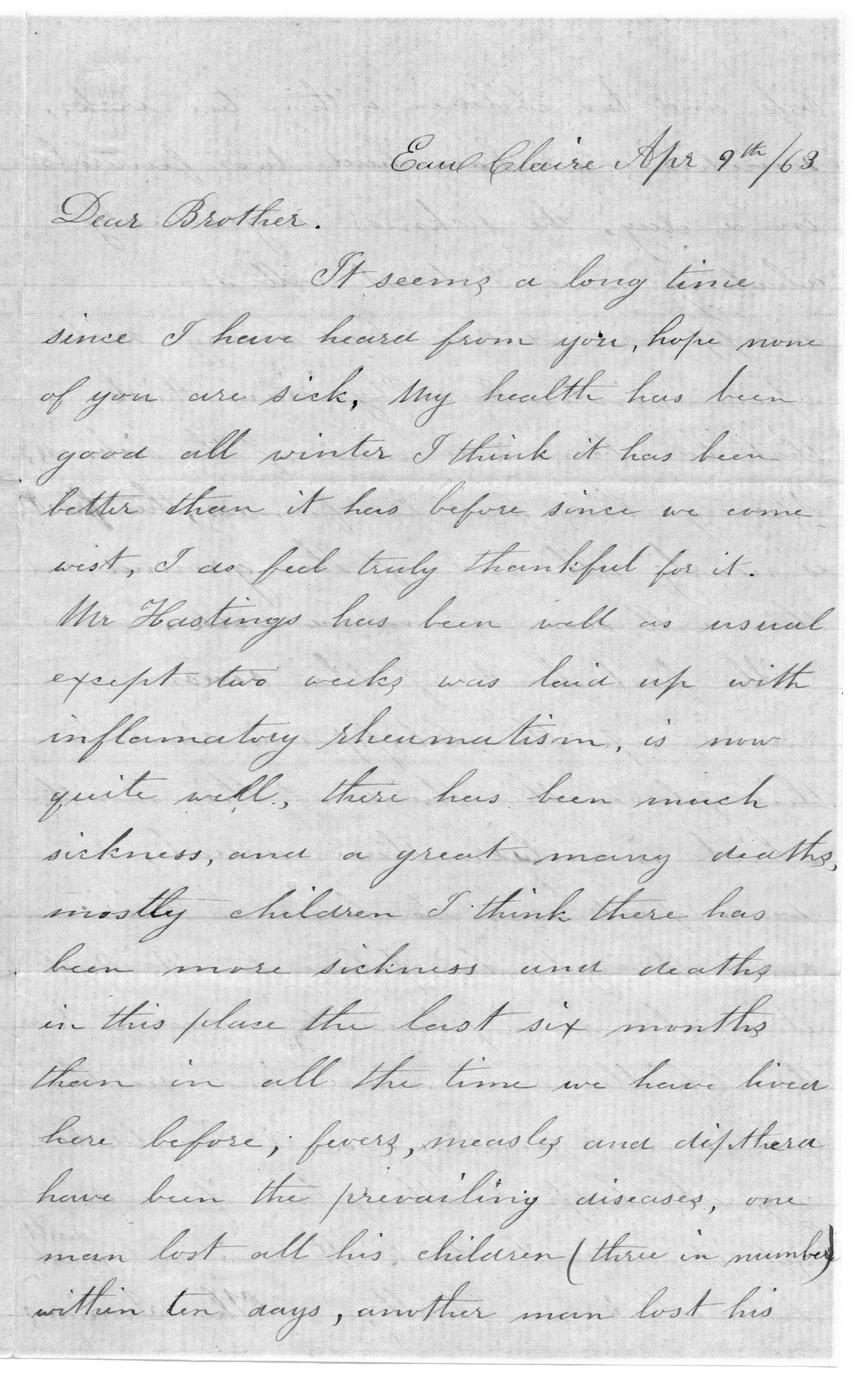 Eau Claire Apr 9th/63
Dear Brother.
It seems a long time
since I have heard from you, hope none
of you are sick, My health has been
good all winter I think it has been
better than it has before since we come
west, I do feel truly thankful for it.
Mr Hastings has been well as usual
except two weeks was laid up with
inflamatory rheumatism, is now
quite well, there has been much
sickness, and a great many deaths,
mostly children I think there has
been more sickness and deaths
in this place the last six months
than in all the time we have lived
here before, fevers, measles and dipthera
have been the prevailing diseases, one
man lost all his children (three in number)
within ten days, another man lost his